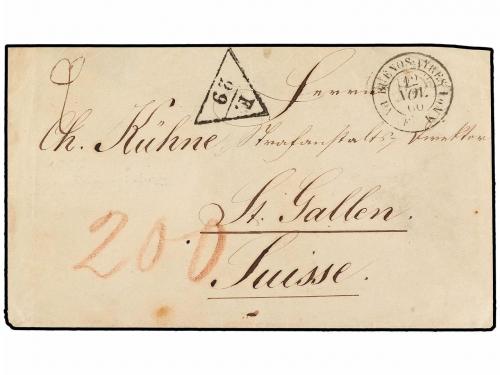 Herrn
Ch. Kühne, Strafanstalts, Direktor
St. Gallen.
Suisse.
200
F. 29
BUENOS-AYRES
12
NOV.
60